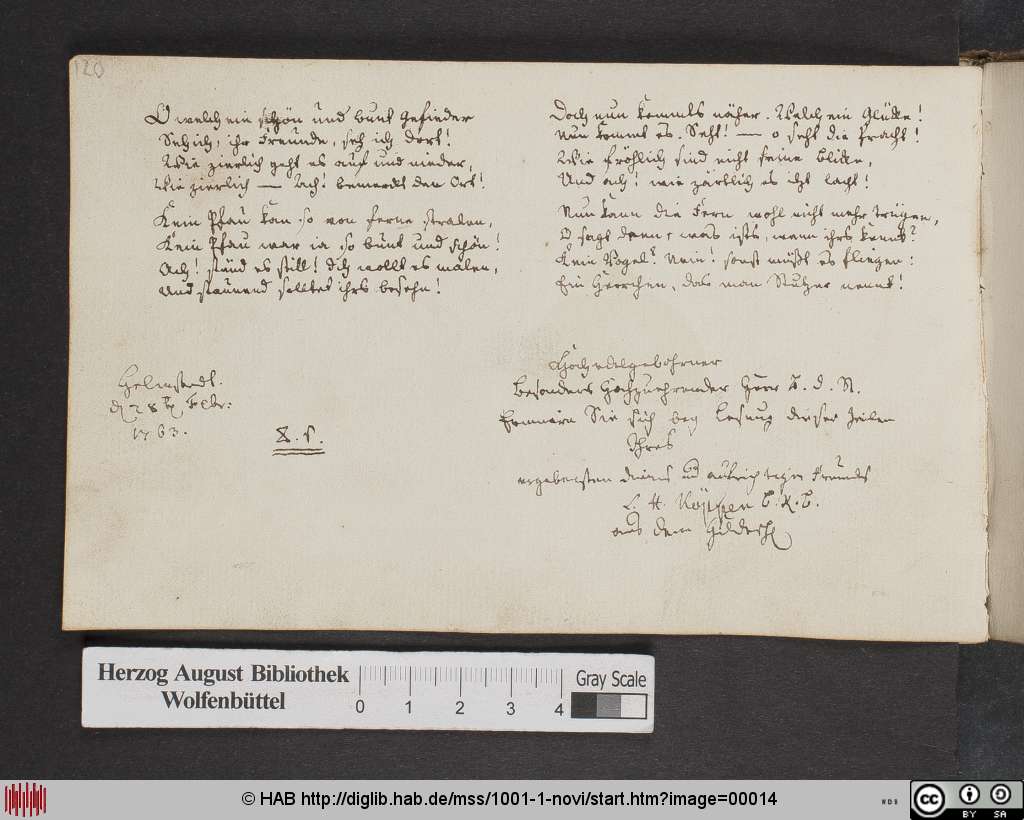 120
O welch ein schön und bunt Gefieder
Seh ich, ihr Freunde, seh ich dort!
Wie zierlich geht es auf und nieder,
Wie zierlich — Ach! bemerckt den Ort!
Kein Pfau kan so von ferne stralen,
Kein Pfau war ia so bunt und schön!
Ach! stünd es still! Ich wollt es malen,
Und staunend solltet ihrs besehn!
Doch nun kommts näher. Welch ein Glücke!
Nun kommt es. Seht! — o seht die Pracht!
Wie fröhlich sind nicht seine Blicke,
Und ach! wie zärtlich es itzt lacht!
Nun kann die Fern wohl nicht mehr trügen,
O sagt denn, was ists, wenn ihrs kennt?
Kein Vogel? Nein! sonst müßt es fliegen:
Ein Herrchen, das man Stutzer nennt!
Helmstedt.
d 28 Febr:
1763.
S.
Hochedelgebohrner
besonders Hochzuehrender Herr
Erinnern Sie sich bey Lesung dieser Zeilen
Ihres
ergebensten Dieners und aufrichtigen Freundes
aus dem Hildesh
Herzog August Bibliothek
Wolfenbüttel
0 1 2 3 4
Gray Scale
© HAB http://diglib.hab.de/mss/1001-1-novi/start.htm?image=00014
cc BY SA